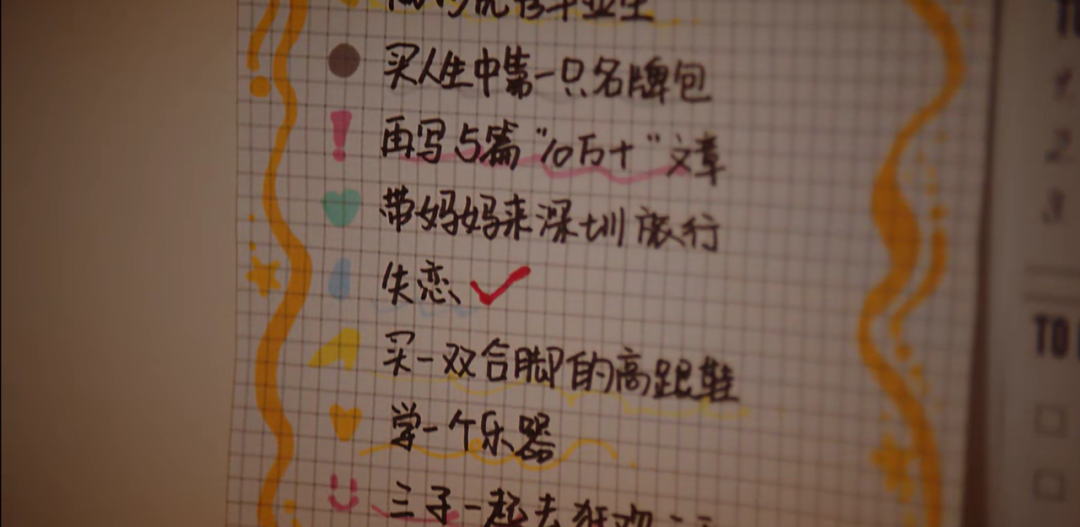 优秀毕业生
买人生中第一只名牌包
再写5篇“10万+”文章
带妈妈来深圳旅行
失恋
买一双合脚的高跟鞋
学一个乐器
三子一起去狂欢
TO
1
2
3
TO